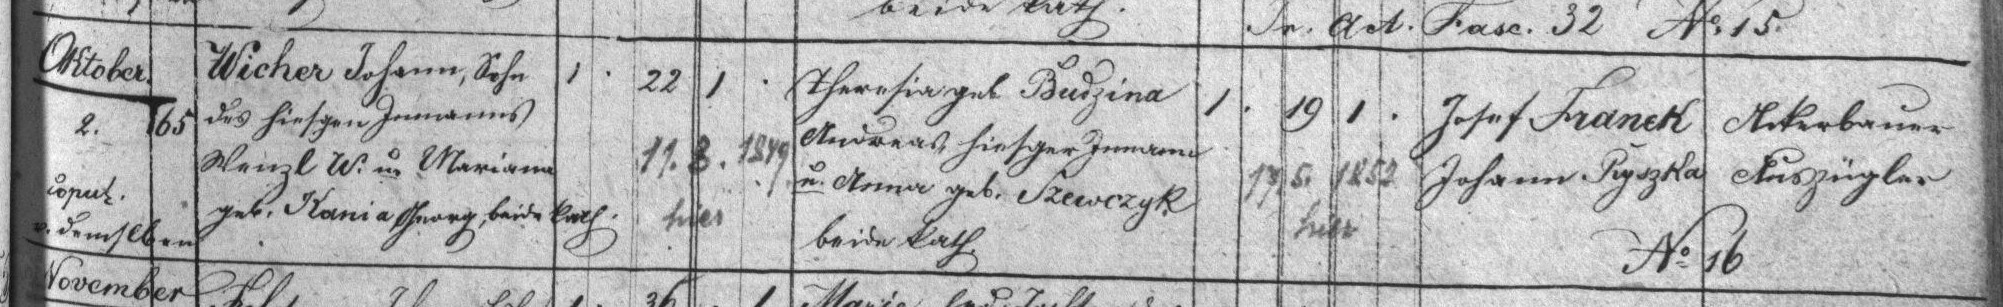 beide kath.
Tr. Act. Fasc. 32 No. 15.
Oktober.
2. 165
copul.
v. demselben
Wicher Johann, Sohn
des hiesgen Inmanns
Wenzl W. u. Mariana
geb. Kania Georg, beide kath.
1 . 22 1 .
11. 8. 1849
hier
Theresia geb. Budzina
Andreas hiesger Inmann
u. Anna geb. Szewczyk
beide kath.
1 . 19 1 .
17. 5. 1852
hier
Josef Franek Ackerbauer
Johann Ryszka Auszügler
No 16
November
36